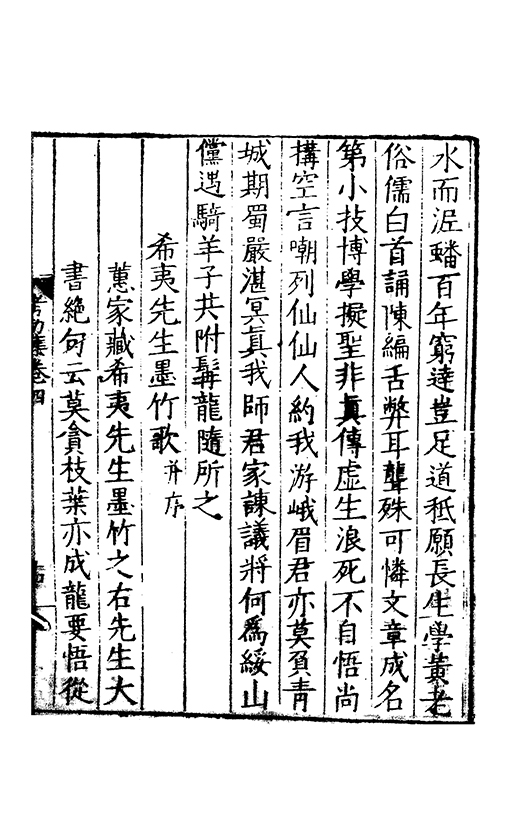 水而泥蟠百年窮達豈足道秪願長生學黃老
俗儒白首誦陳編舌弊耳聾殊可憐文章成名
第小技博學擬聖非眞傳虚生浪死不自悟尚
搆空言嘲列仙仙人約我游峨眉君亦莫負青
城期蜀嚴湛冥眞我師君家諫議將何爲綏山
儻遇騎羊子共附髯龍隨所之
希夷先生墨竹歌并序
蕙家藏希夷先生墨竹之右先生大
書絶句云莫貪枝葉亦成龍要悟從
卷四